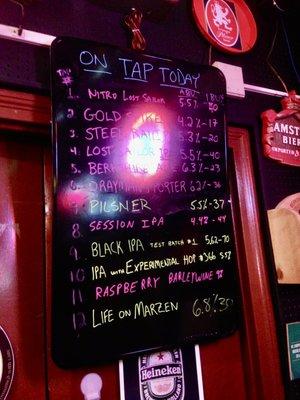 ON TAP TODAY
TAP # ABV IBUS
1. NITRO LOST SAILOR 5.5%-
2. GOLD 4.2%-17
3. STEEL RAIL 5.3%-20
4. LOST SAILOR 5.5%-40
5. ALE 6.3%-23
6. DRAYMAN'S PORTER 6.2%-36
7. PILSNER 5.5%-37
8 SESSION IPA 4.4%-44
9. BLACK IPA TEST BATCH #1 5.62-70
10. IPA WITH EXPERIMENTAL HOP #366 5.5%
11 RASPBERRY BARLEYWINE
12 LIFE ON MARZEN 6.8%
AMSTEL
BIER
IMPORTED
Heineken